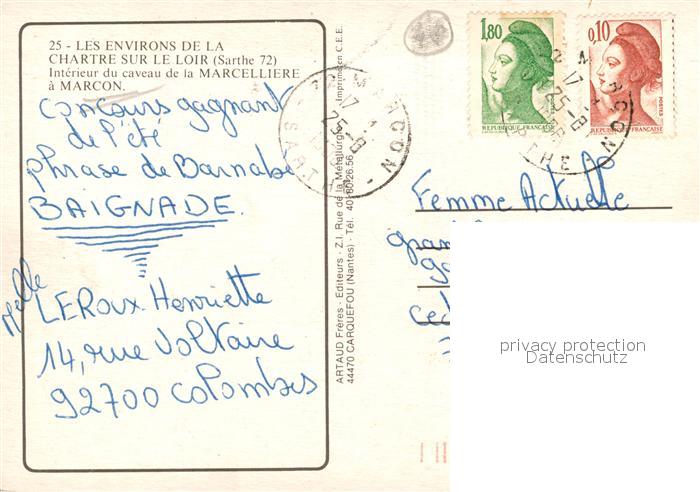 25 - LES ENVIRONS DE LA
CHARTRE SUR LE LOIR (Sarthe 72)
Intérieur du caveau de la MARCELLIERE
à MARCON.
concours gagnant
de l'été
phrase de Barnabé
BAIGNADE.
Melle
LEROUX Henriette
14, rue Voltaire
92700 Colombes
ARTAUD Frères - Editeurs - Z.I. Rue de la Métallurgie
44470 CARQUEFOU (Nantes) - Tél. 40.80.26.56
Imprimé en C.E.E.
MARCON
25-8
SARTHE
1,80
REPUBLIQUE FRANÇAISE
0,10
POSTES
REPUBLIQUE FRANÇAISE
25-8
Femme Actuelle
privacy protection
Datenschutz